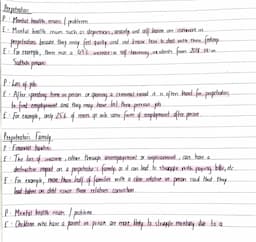 Perpetrators
P - Mental health issues / problems
E - Mental health issues such as depression, anxiety and self harm are common in
perpetrators because they may feel guilty and not know how to deal with these feelings
E - For example, there was a in self-harming incidents from 2018 in
prisons
P - Loss of job
E - After spending time in prison or gaining a criminal record it is often hard for perpetrators
to find employment and they may have lost their previous job
E - For example, only of have some form of employment after prison
Perpetrators Family
P - Financial
E - The loss of income, either through unemployment or imprisonment, can have a
destructive impact on a perpetrator's family as it can lead to struggles with paying bills, etc
E - For example, more than half of families with a close relative in prison said that they
had taken on debt since their relatives conviction
P - Mental health issues / problems
E - Children who have a parent in prison are more likely to struggle mentally due to a